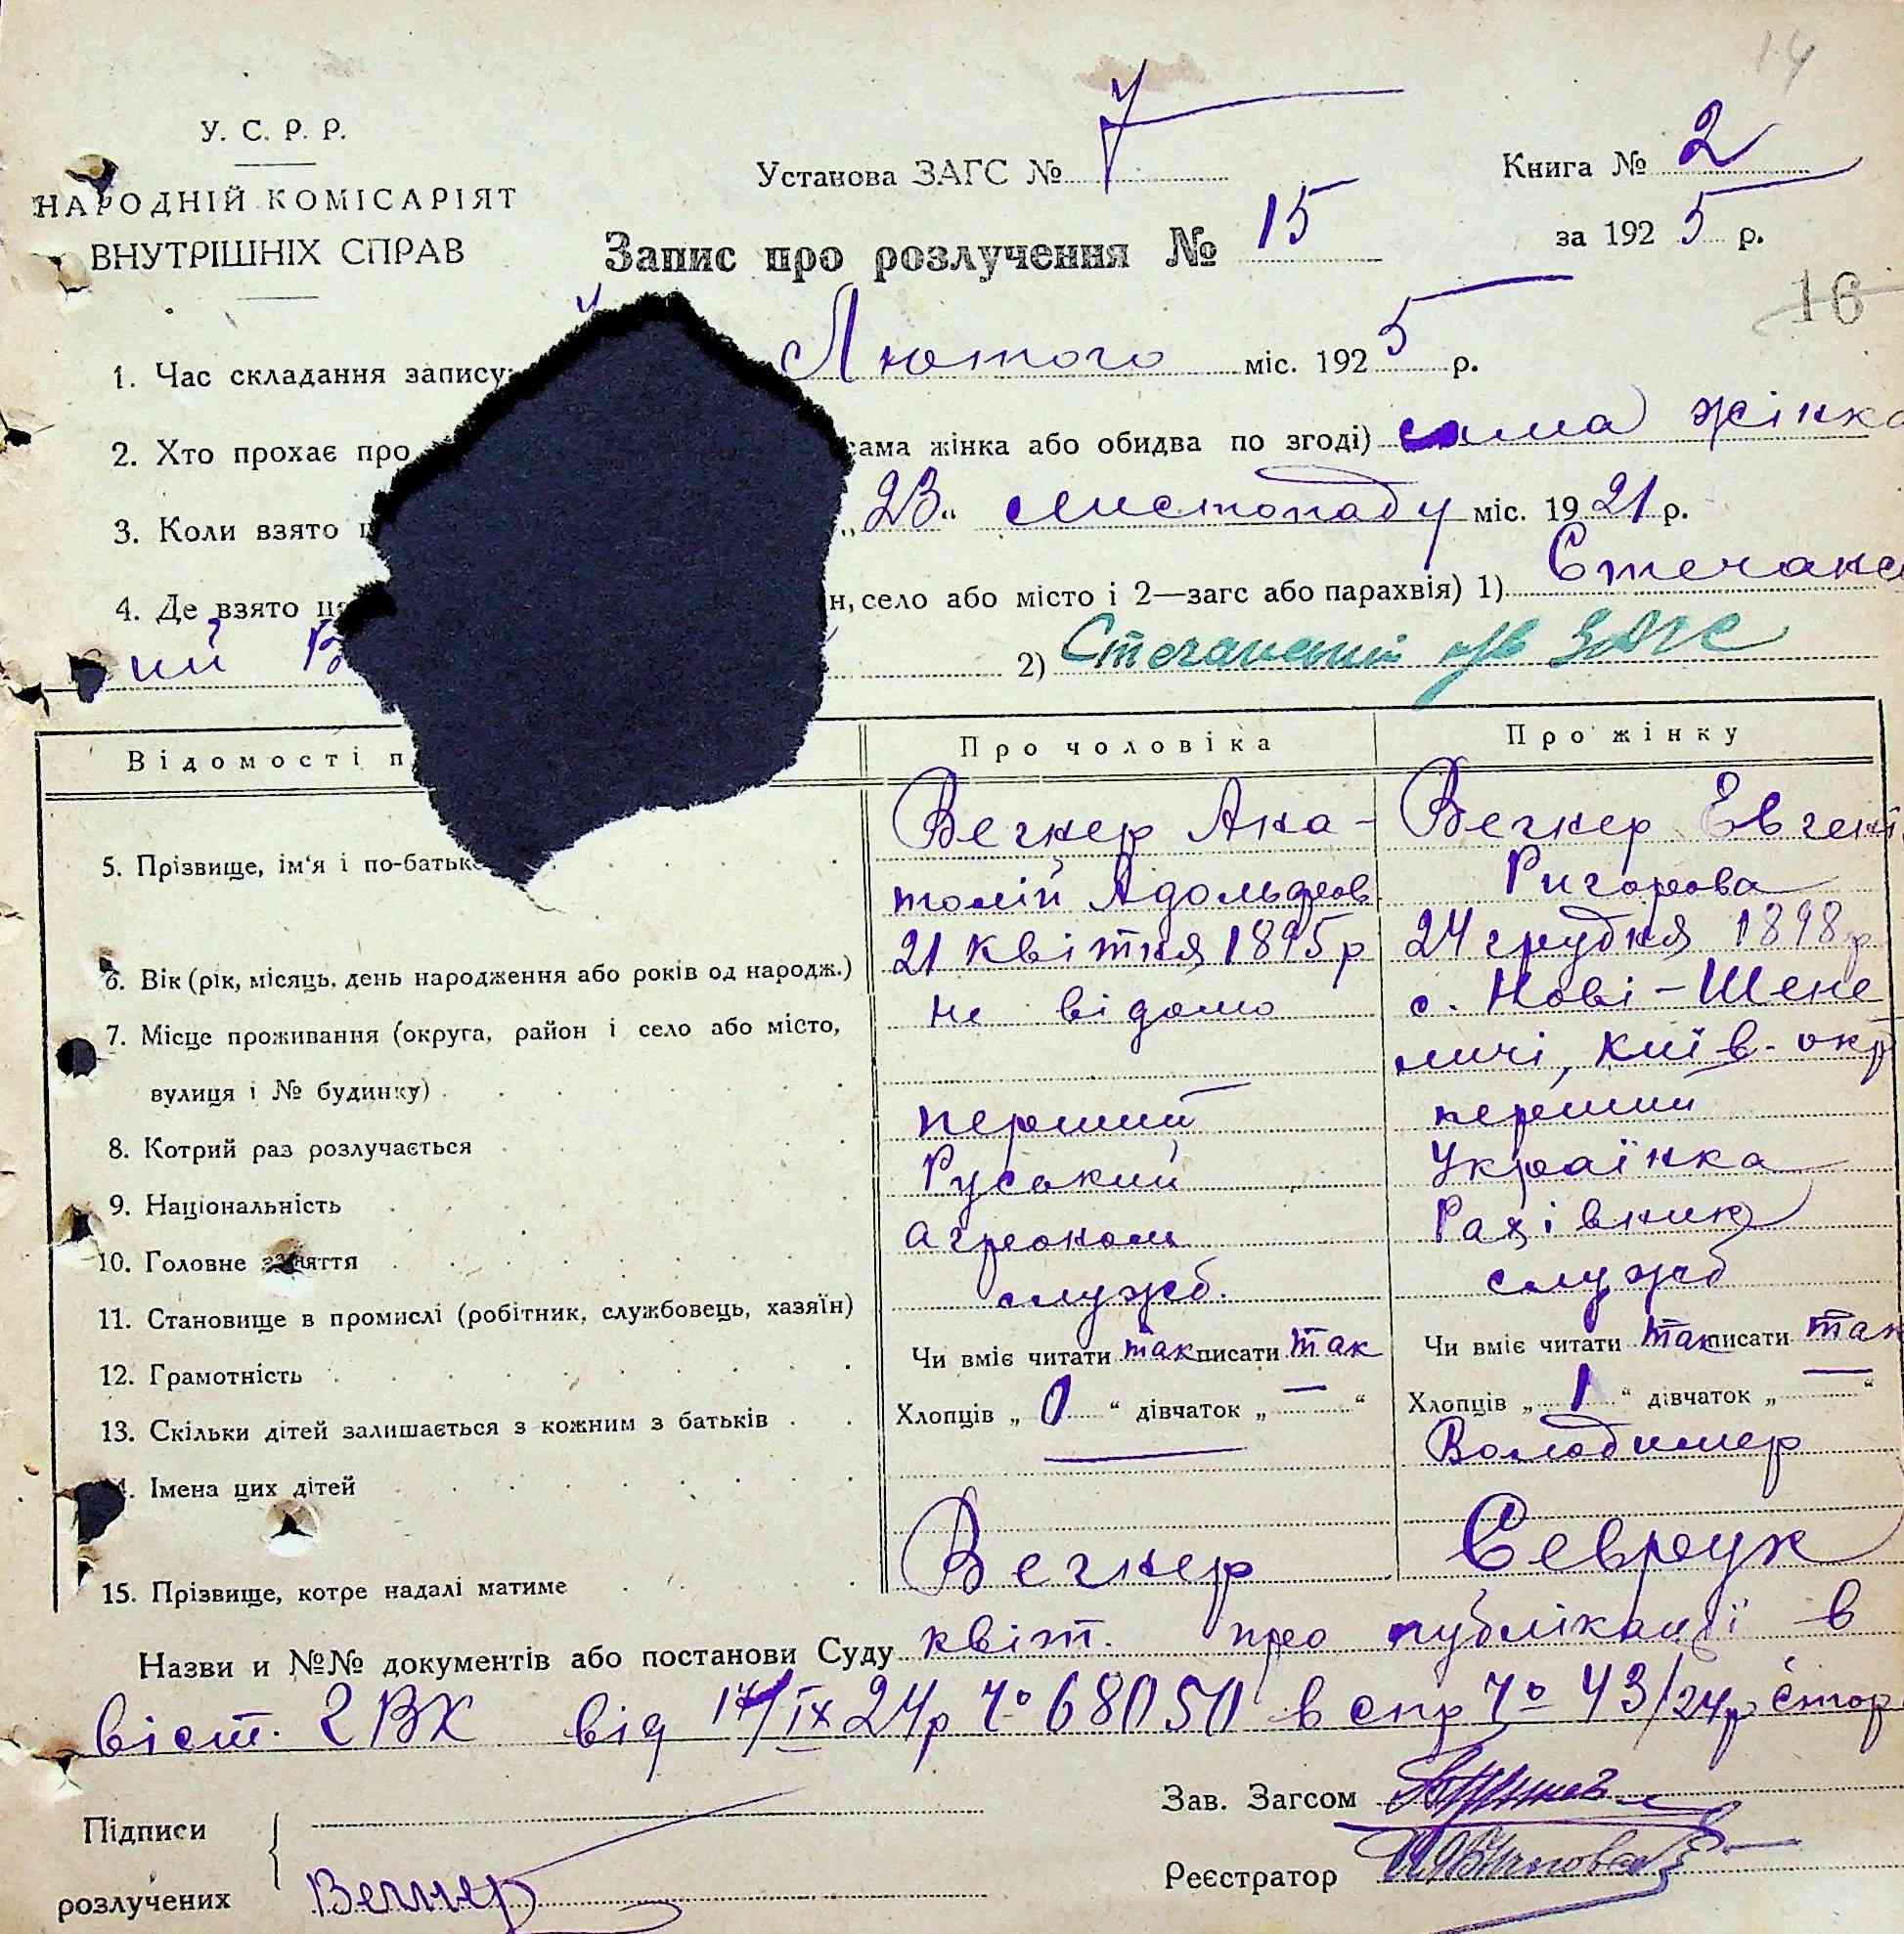 14
У. С. Р. Р.
НАРОДНІЙ КОМІСАРІЯТ
ВНУТРІШНІХ СПРАВ
Установа ЗАГС № 7
Книга № 2
за 1925 р.
Запис про розлучення № 15
16
1. Час складання запису: Лютого міс. 1925 р.
2. Хто прохає про сама жінка або обидва по згоді) сама жінка
3. Коли взято „23“ листопаду міс. 1921 р.
4. Де взято село або місто і 2—загс або парахвія) 1)
2) ЗАГС
Відомості п
Про чоловіка
Про жінку
5. Прізвище, ім'я і по-батьк
Вегнер Ана-
толій Адольфов.
Вегнер Евгені
Ригорова
6. Вік (рік, місяць, день народження або років од народж.)
21 квітня 1895 р
24 грудня 1898 р
7. Місце проживання (округа, район і село або місто,
вулиця і № будинку)
не відомо
с. Нові-Шепе
личі, Київ. окр
8. Котрий раз розлучається
перший
перший
9. Національність
Руський
Українка
10. Головне заняття
агроном
Рахівник
11. Становище в промислі (робітник, службовець, хазяїн)
служб.
служб
12. Грамотність
Чи вміє читати так писати так
Чи вміє читати так писати так
13. Скільки дітей залишається з кожним з батьків
Хлопців „ 0 “ дівчаток „ — “
Хлопців „ 1 “ дівчаток „ — “
14. Імена цих дітей
Володимер
15. Прізвище, котре надалі матиме
Вегнер
Севрук
Назви и №№ документів або постанови Суду квіт. про публікації в
віст. ВК від 17/IX 24р Чо 68050 в спр Чо 43/24р
Підписи
розлучених
Вегнер
Зав. Загсом
Реєстратор